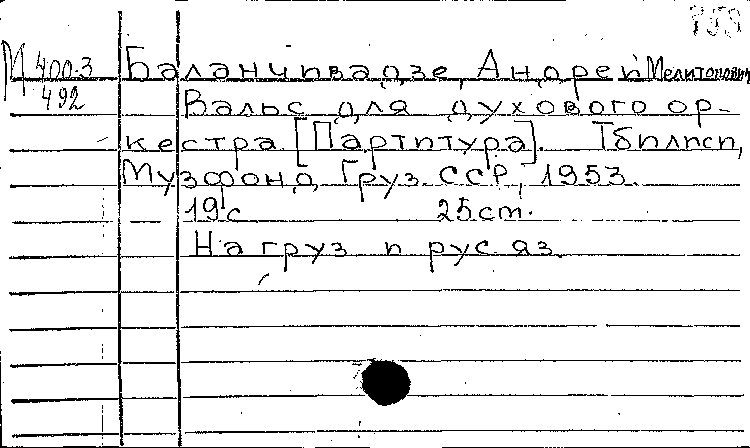 М 400-3
492
Баланчивадзе, Андрей Мелитонович
Вальс для духового ор-
кестра [Партитура]. Тбилиси,
Музфонд Груз. ССР, 1953.
19 с 25 см.
На груз и рус яз.